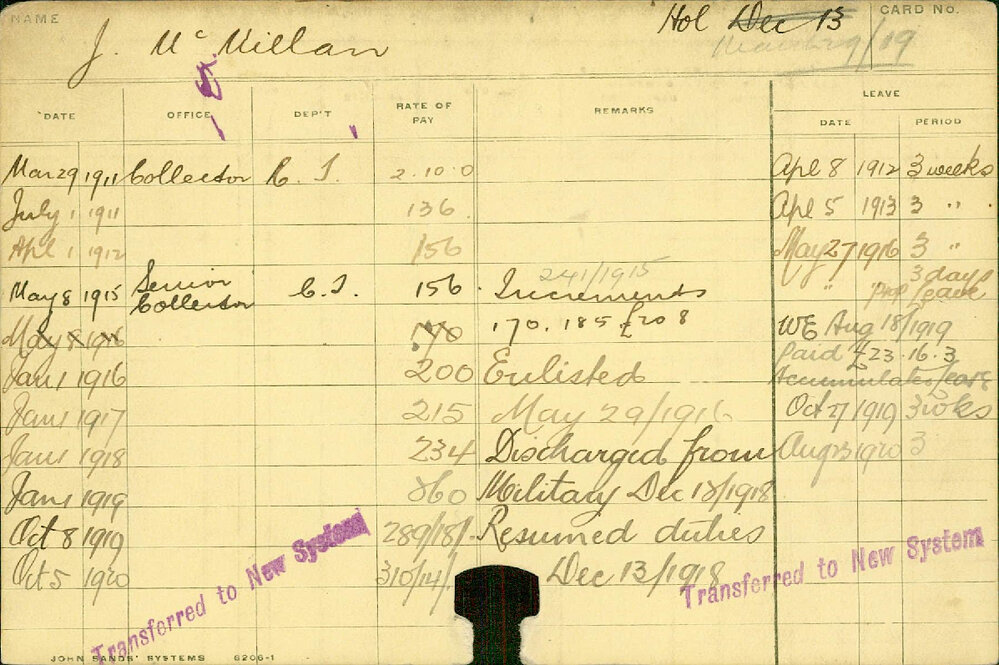 NAME J. McMillan Hol Dec 13 CARD No.
/19
LEAVE
DATE OFFICE DEP'T RATE OF PAY REMARKS DATE PERIOD
Mar 29 1911 Collector C. T. 2.10.0 Apl 8 1912 3 weeks
July 1 1911 136 Apl 5 1913 3 "
Apl 1 1912 156 May 27 1916 3 "
241/1915 3 days
May 8 1915 Senior Collector C. T. 156 Increments " prop leave
May 8 1916 170 170. 185 £208 WE Aug 18/1919
Jan 1 1916 200 Enlisted Paid £23.16.3
Accumulated leave
Jan 1 1917 215 May 29/1916 Oct 27 1919 3 wks
Jan 1 1918 234 Discharged from Aug 23 1920 3
Jan 1 1919 260 Military Dec 13/1918
Oct 8 1919 289/18/- Resumed duties
Oct 5 1920 310/14/- Dec 13/1918
Transferred to New System
Transferred to New System
JOHN SANDS' SYSTEMS 6206-1